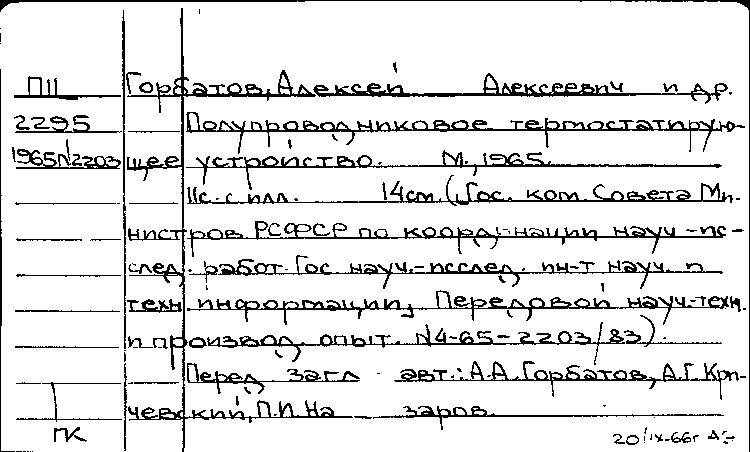 П11 Горбатов, Алексей Алексеевич и др.
2295 Полупроводниковое термостатирую-
1965N2203 щее устройство. М., 1965.
11с. с илл. 14см. (Гос. ком. Совета Ми-
нистров РСФСР по коорд-нации науч-ис-
след. работ. Гос науч.-исслед. ин-т науч. и
техн. информации, Передовой науч-техн.
и производ. опыт. N4-65-2203/83).
Перед загл авт.: А.А. Горбатов, А.Г. Кри-
чевский, П.И. На заров.
ПК 20/IX-66г